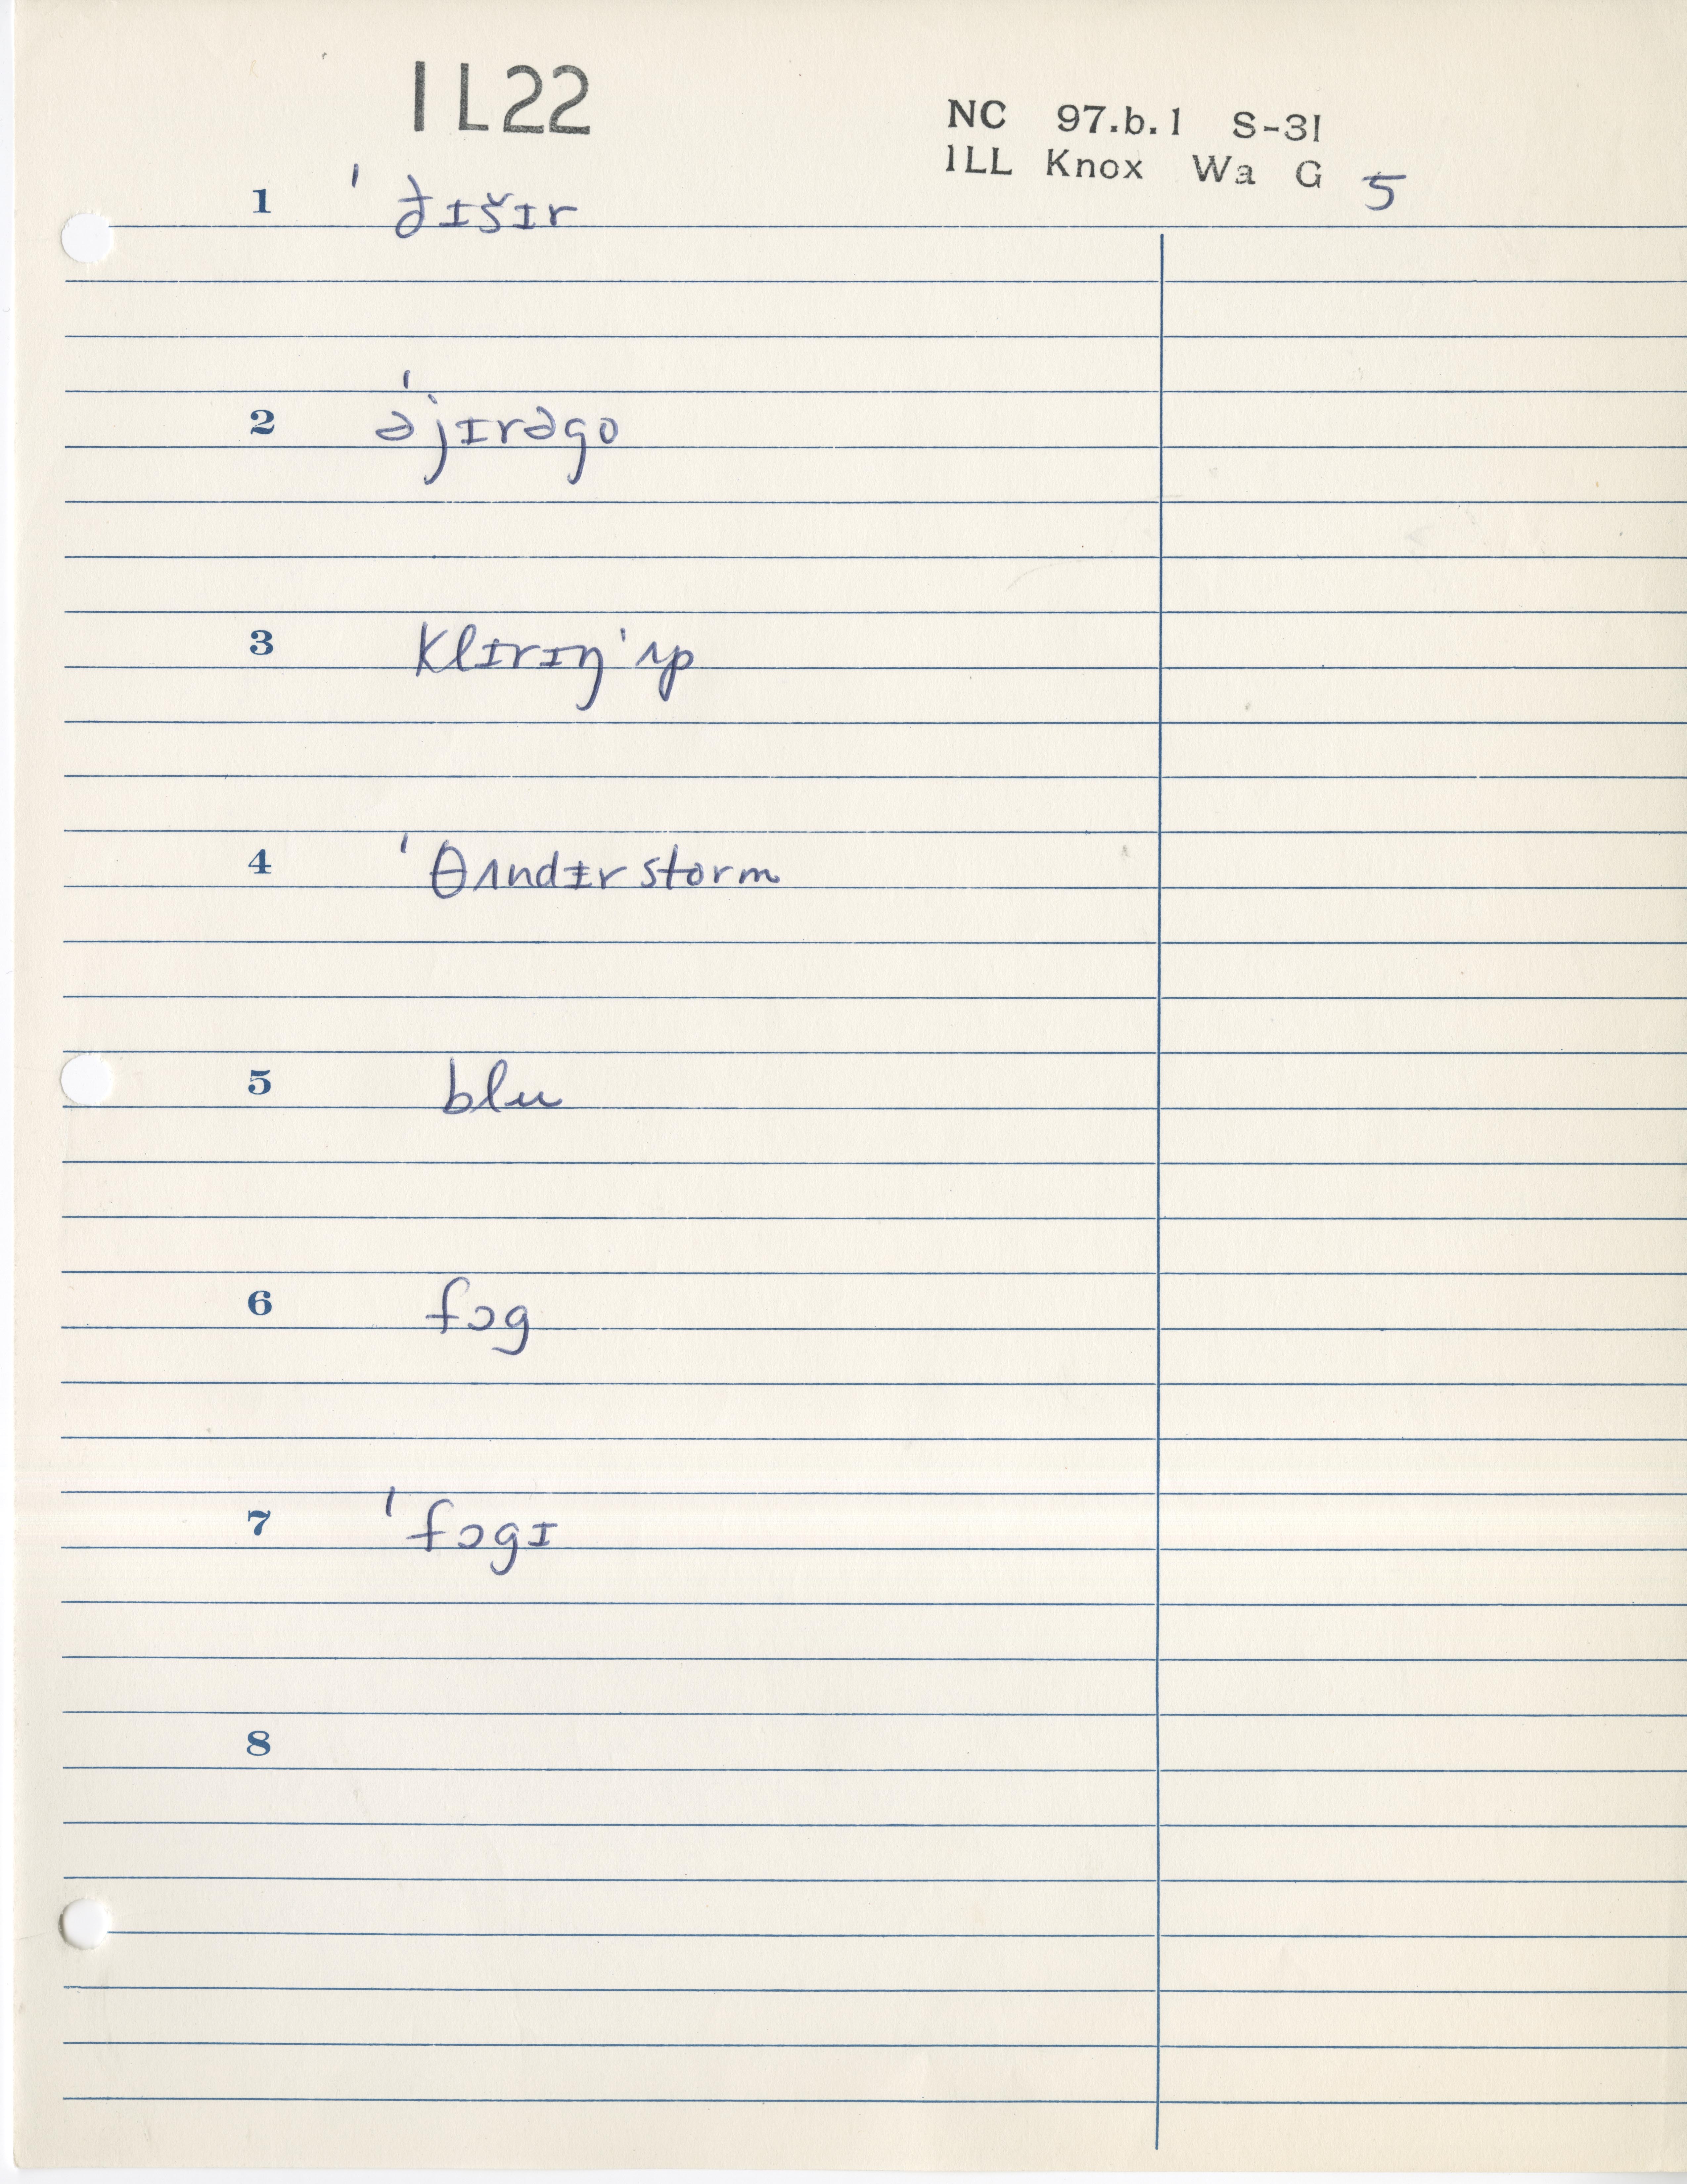 1L22
NC 97.b.1 S-31
ILL Knox Wa G 5
1 ˈðɪšɪr
2 əˈjɪrəgo
3 klɪrɪŋˈʌp
4 ˈθʌndɪrstɔrm
5 blu
6 fɔg
7 ˈfɔgɪ
8